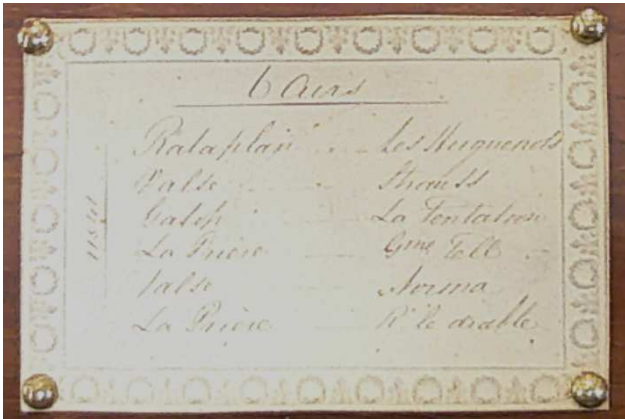 6 Airs
Rataplan Les Huguenots
Valse Strauss
Galop La Tentation
La Prière Gme Tell
Valse Norma
La Prière R. le diable